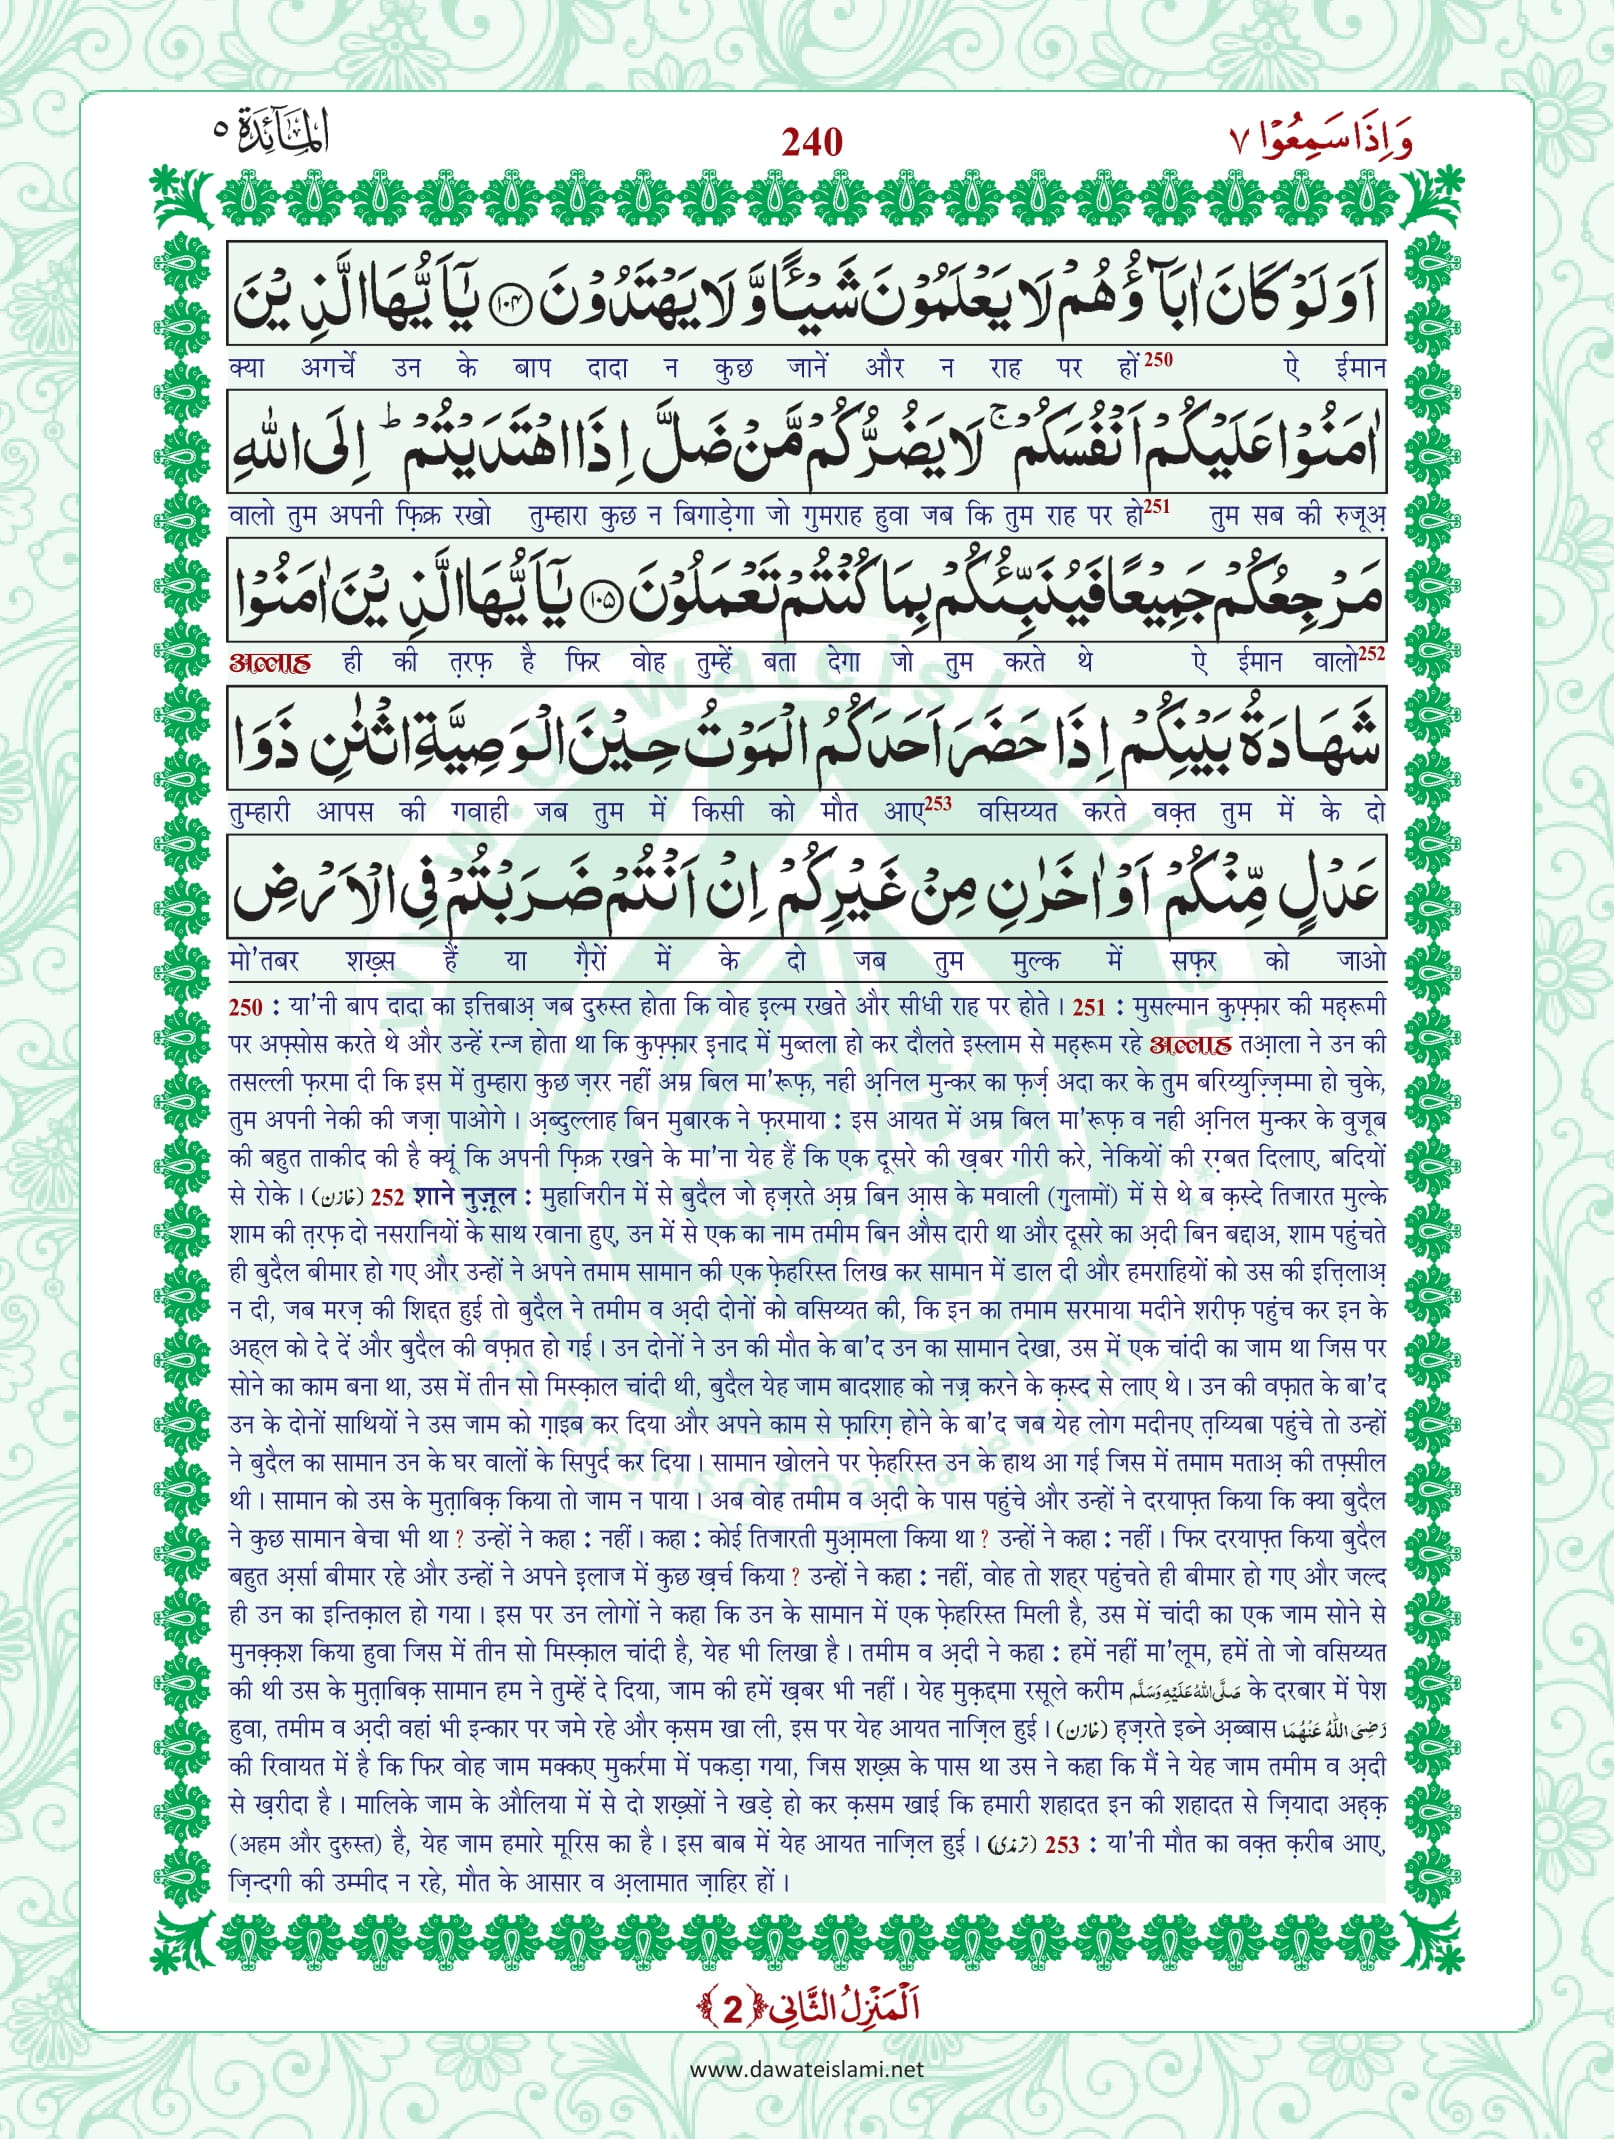 وَاِذَا سَمِعُوْا ٧
240
اَلْمَآئِدَة ٥
اَوَلَوْ كَانَ اٰبَآؤُهُمْ لَا يَعْلَمُوْنَ شَيْـًٔا وَّ لَا يَهْتَدُوْنَ ﴿١٠٤﴾ يٰۤاَيُّهَا الَّذِيْنَ
क्या अगर्चे उन के बाप दादा न कुछ जानें और न राह पर हों250 ऐ ईमान
اٰمَنُوْا عَلَيْكُمْ اَنْفُسَكُمْ ۚ لَا يَضُرُّكُمْ مَّنْ ضَلَّ اِذَا اهْتَدَيْتُمْ ؕ اِلَى اللّٰهِ
वालो तुम अपनी फ़िक्र रखो तुम्हारा कुछ न बिगाड़ेगा जो गुमराह हुवा जब कि तुम राह पर हो251 तुम सब की रुजूअ़
مَرْجِعُكُمْ جَمِيْعًا فَيُنَبِّئُكُمْ بِمَا كُنْتُمْ تَعْمَلُوْنَ ﴿١٠٥﴾ يٰۤاَيُّهَا الَّذِيْنَ اٰمَنُوْا
अल्लाह ही की त़रफ़ है फिर वोह तुम्हें बता देगा जो तुम करते थे ऐ ईमान वालो252
شَهَادَةُ بَيْنِكُمْ اِذَا حَضَرَ اَحَدَكُمُ الْمَوْتُ حِيْنَ الْوَصِيَّةِ اثْنٰنِ ذَوَا
तुम्हारी आपस की गवाही जब तुम में किसी को मौत आए253 वसिय्यत करते वक़्त तुम में के दो
عَدْلٍ مِّنْكُمْ اَوْ اٰخَرٰنِ مِنْ غَيْرِكُمْ اِنْ اَنْتُمْ ضَرَبْتُمْ فِي الْاَرْضِ
मो'तबर शख़्स हैं या ग़ैरों में के दो जब तुम मुल्क में सफ़र को जाओ
250 : या'नी बाप दादा का इत्तिबाअ़ जब दुरुस्त होता कि वोह इल्म रखते और सीधी राह पर होते। 251 : मुसल्मान कुफ़्फ़ार की महरूमी
पर अफ़्सोस करते थे और उन्हें रन्ज होता था कि कुफ़्फ़ार इनाद में मुब्तला हो कर दौलते इस्लाम से महरूम रहे अल्लाह तआ़ला ने उन की
तसल्ली फ़रमा दी कि इस में तुम्हारा कुछ ज़रर नहीं अम्र बिल मा'रूफ़, नही अ़निल मुन्कर का फ़र्ज़ अदा कर के तुम बरिय्युज़्ज़िम्मा हो चुके,
तुम अपनी नेकी की जज़ा पाओगे। अ़ब्दुल्लाह बिन मुबारक ने फ़रमाया : इस आयत में अम्र बिल मा'रूफ़ व नही अ़निल मुन्कर के वुजूब
की बहुत ताकीद की है क्यूं कि अपनी फ़िक्र रखने के मा'ना येह हैं कि एक दूसरे की ख़बर गीरी करे, नेकियों की रग़्बत दिलाए, बदियों
से रोके। (خازن) 252 शाने नुज़ूल : मुहाजिरीन में से बुदैल जो ह़ज़रते अ़म्र बिन आ़स के मवाली (ग़ुलामों) में से थे ब क़स्दे तिजारत मुल्के
शाम की त़रफ़ दो नसरानियों के साथ रवाना हुए, उन में से एक का नाम तमीम बिन औस दारी था और दूसरे का अ़दी बिन बद्दाअ, शाम पहुंचते
ही बुदैल बीमार हो गए और उन्हों ने अपने तमाम सामान की एक फ़ेहरिस्त लिख कर सामान में डाल दी और हमराहियों को उस की इत्तिलाअ़
न दी, जब मरज़ की शिद्दत हुई तो बुदैल ने तमीम व अ़दी दोनों को वसिय्यत की, कि इन का तमाम सरमाया मदीने शरीफ़ पहुंच कर इन के
अहल को दे दें और बुदैल की वफ़ात हो गई। उन दोनों ने उन की मौत के बा'द उन का सामान देखा, उस में एक चांदी का जाम था जिस पर
सोने का काम बना था, उस में तीन सो मिस्क़ाल चांदी थी, बुदैल येह जाम बादशाह को नज़्र करने के क़स्द से लाए थे। उन की वफ़ात के बा'द
उन के दोनों साथियों ने उस जाम को ग़ाइब कर दिया और अपने काम से फ़ारिग़ होने के बा'द जब येह लोग मदीनए त़य्यिबा पहुंचे तो उन्हों
ने बुदैल का सामान उन के घर वालों के सिपुर्द कर दिया। सामान खोलने पर फ़ेहरिस्त उन के हाथ आ गई जिस में तमाम मताअ़ की तफ़्सील
थी। सामान को उस के मुत़ाबिक़ किया तो जाम न पाया। अब वोह तमीम व अ़दी के पास पहुंचे और उन्हों ने दरयाफ़्त किया कि क्या बुदैल
ने कुछ सामान बेचा भी था? उन्हों ने कहा : नहीं। कहा : कोई तिजारती मुआ़मला किया था? उन्हों ने कहा : नहीं। फिर दरयाफ़्त किया बुदैल
बहुत अ़र्सा बीमार रहे और उन्हों ने अपने इलाज में कुछ ख़र्च किया? उन्हों ने कहा : नहीं, वोह तो शहर पहुंचते ही बीमार हो गए और जल्द
ही उन का इन्तिक़ाल हो गया। इस पर उन लोगों ने कहा कि उन के सामान में एक फ़ेहरिस्त मिली है, उस में चांदी का एक जाम सोने से
मुनक़्क़श किया हुवा जिस में तीन सो मिस्क़ाल चांदी है, येह भी लिखा है। तमीम व अ़दी ने कहा : हमें नहीं मा'लूम, हमें तो जो वसिय्यत
की थी उस के मुत़ाबिक़ सामान हम ने तुम्हें दे दिया, जाम की हमें ख़बर भी नहीं। येह मुक़द्दमा रसूले करीम صَلَّى اللهُ عَلَيْهِ وَسَلَّم के दरबार में पेश
हुवा, तमीम व अ़दी वहां भी इन्कार पर जमे रहे और क़सम खा ली, इस पर येह आयत नाज़िल हुई। (خازن) ह़ज़रते इब्ने अ़ब्बास رَضِيَ اللهُ عَنْهُمَا
की रिवायत में है कि फिर वोह जाम मक्कए मुकर्रमा में पकड़ा गया, जिस शख़्स के पास था उस ने कहा कि मैं ने येह जाम तमीम व अ़दी
से ख़रीदा है। मालिके जाम के औलिया में से दो शख़्सों ने खड़े हो कर क़सम खाई कि हमारी शहादत इन की शहादत से ज़ियादा अह़क़
(अहम और दुरुस्त) है, येह जाम हमारे मूरिस का है। इस बाब में येह आयत नाज़िल हुई। (ترمذی) 253 : या'नी मौत का वक़्त क़रीब आए,
ज़िन्दगी की उम्मीद न रहे, मौत के आसार व अ़लामात ज़ाहिर हों।
اَلْمَنْزِلُ الثَّانِي ﴿2﴾
www.dawateislami.net